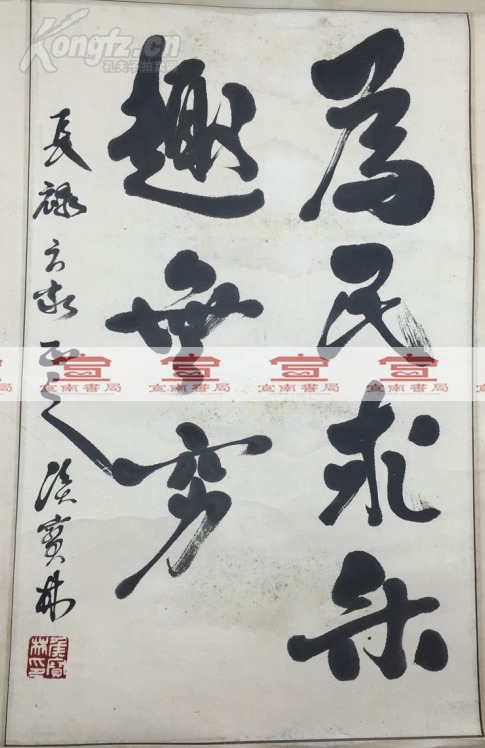 為民求樂
趣無窮
長禄方家正之 侯寶林
侯寶林印
Kongfz.cn
孔夫子拍卖网
宣南書局
宣南書局
宣南書局
宣南書局